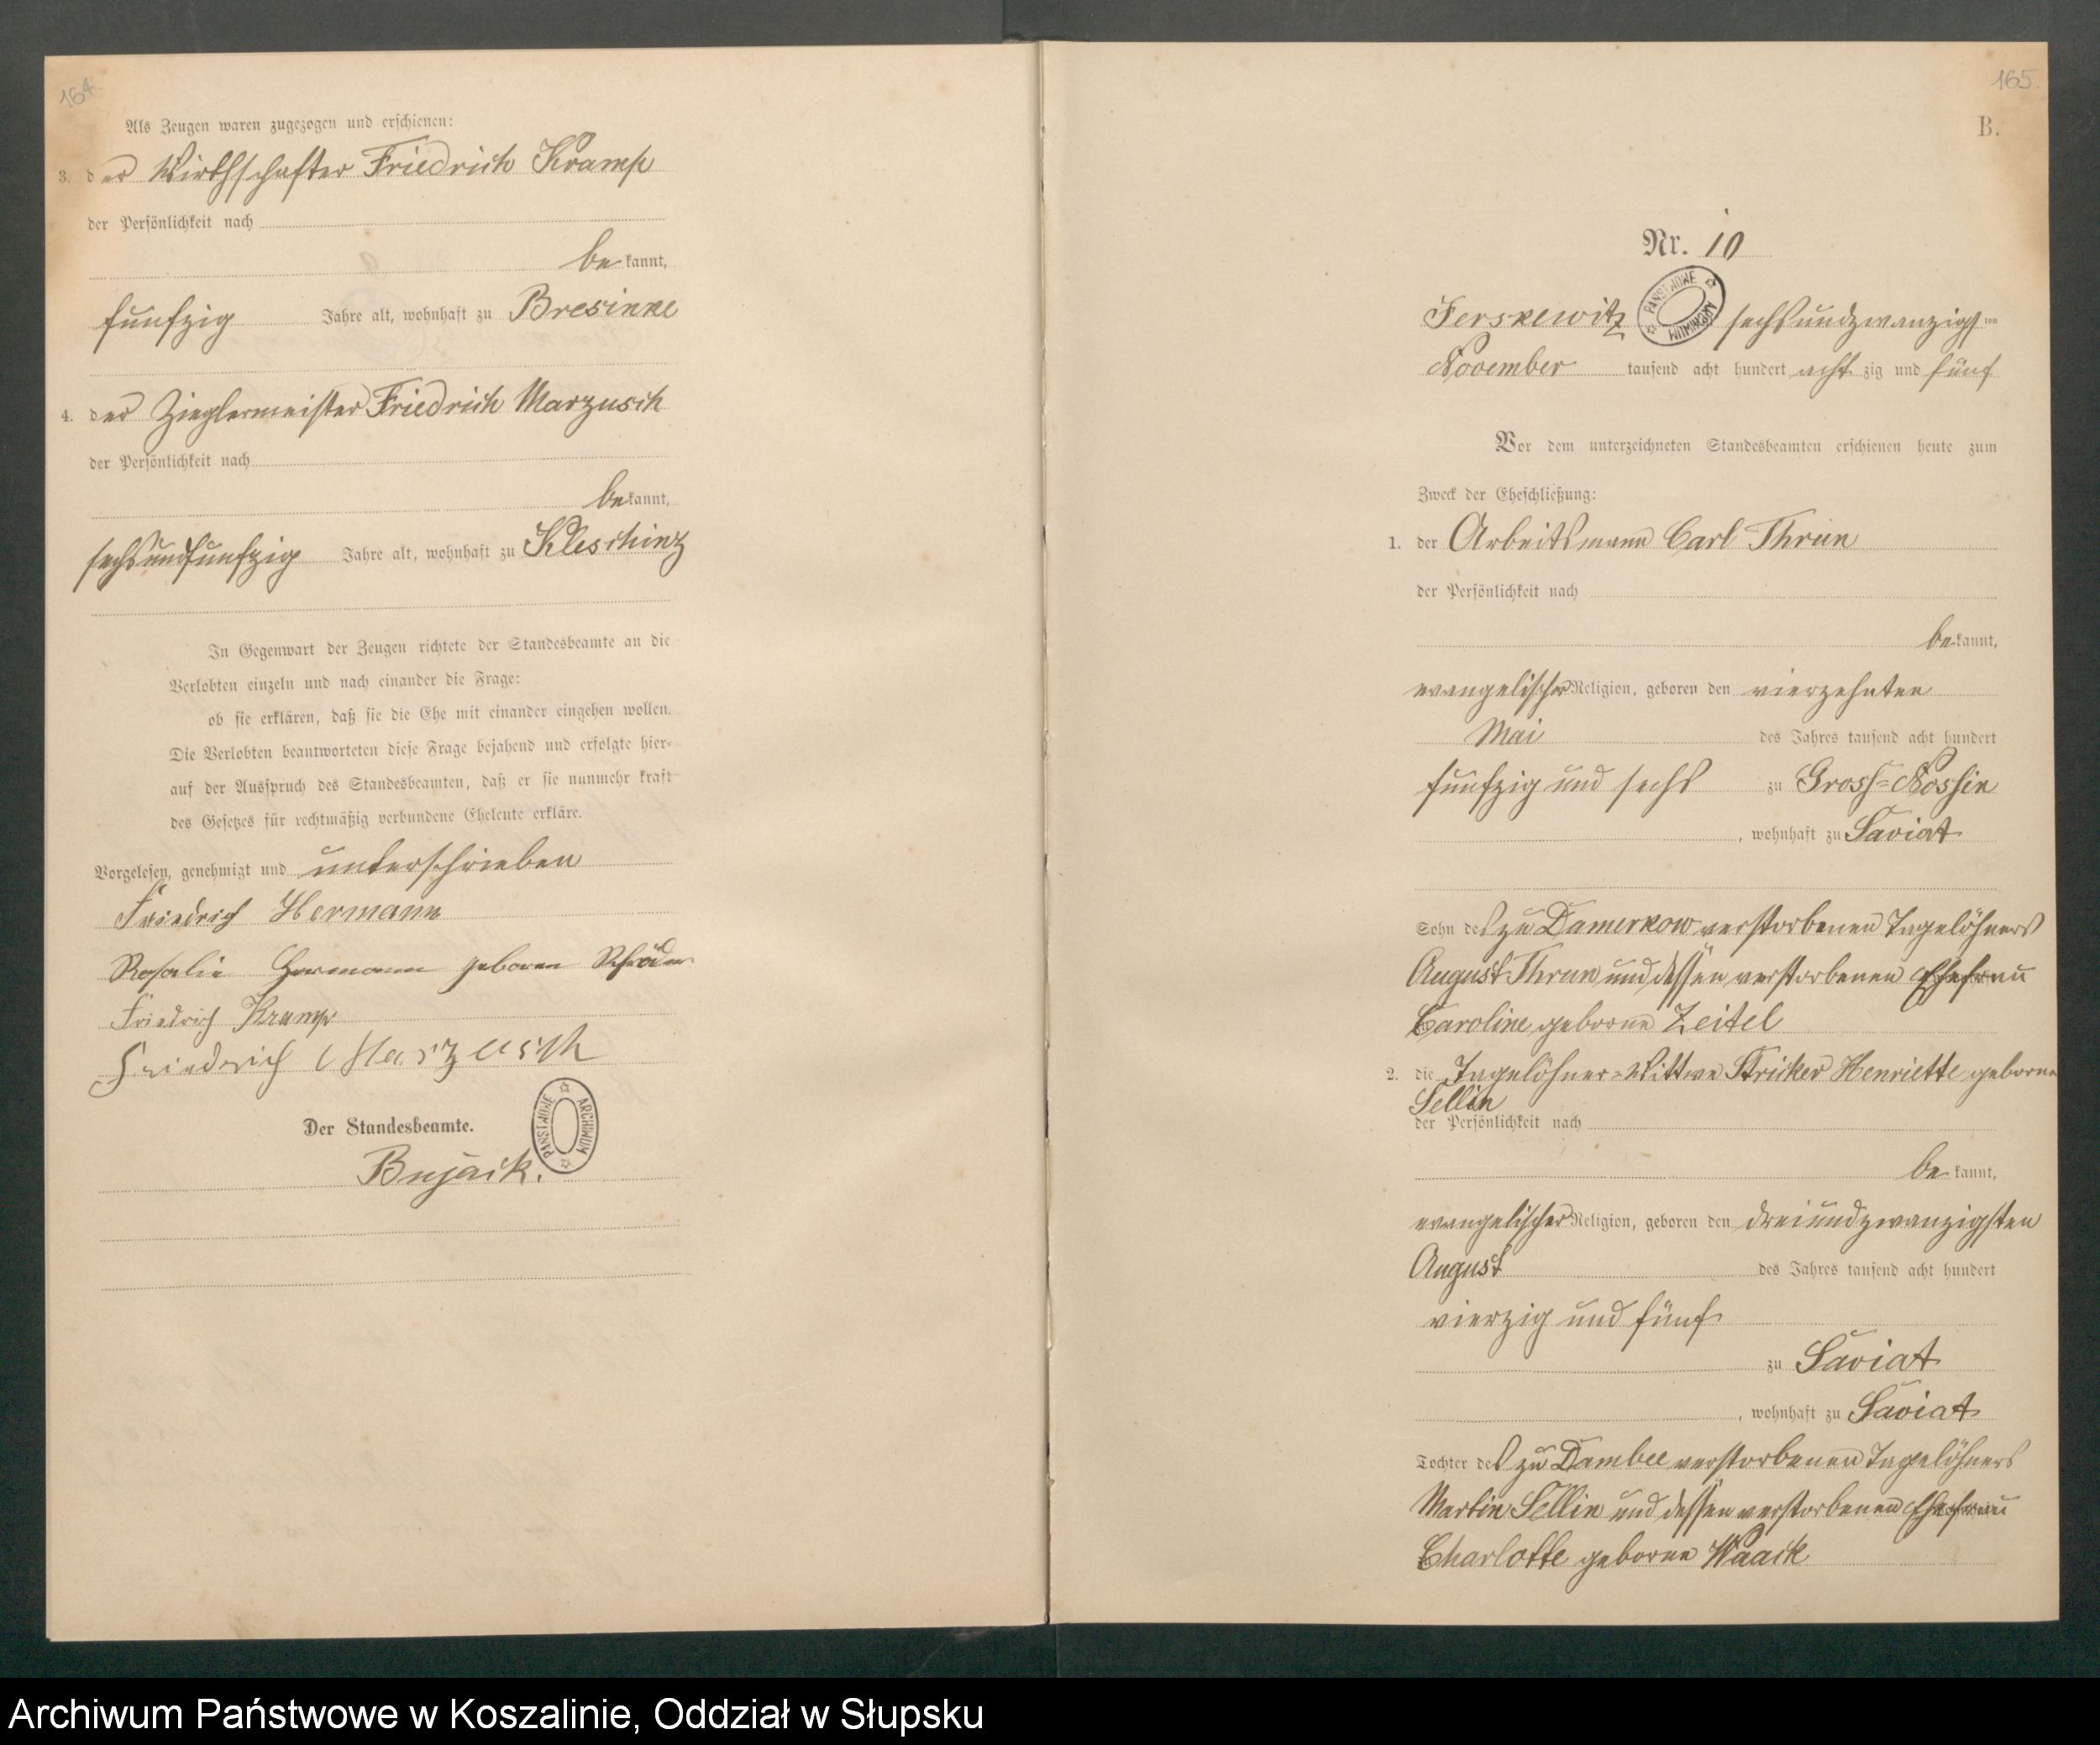 164.
Als Zeugen waren zugezogen und erschienen:
3. der Wirthschafter Friedrich Kramp
der Persönlichkeit nach
bekannt,
funfzig Jahre alt, wohnhaft zu Bresinke
4. der Zieglermeister Friedrich Marzusch
der Persönlichkeit nach
bekannt,
sechsundfunfzig Jahre alt, wohnhaft zu Kleschinz
In Gegenwart der Zeugen richtete der Standesbeamte an die
Verlobten einzeln und nach einander die Frage:
ob sie erklären, daß sie die Ehe mit einander eingehen wollen.
Die Verlobten beantworteten diese Frage bejahend und erfolgte hier-
auf der Ausspruch des Standesbeamten, daß er sie nunmehr kraft
des Gesetzes für rechtmäßig verbundene Eheleute erkläre.
Vorgelesen, genehmigt und unterschrieben
Friedrich Hermann
Rosalie Hermann geboren Schröder
Friedrich Kramp
Friedrich Marzusch
Der Standesbeamte.
PAŃSTWOWE ARCHIWUM
Bujack.
165.
B.
Nr. 10
Jerskewitz PAŃSTWOWE ARCHIWUM sechsundzwanzigsten
November tausend acht hundert achtzig und fünf
Vor dem unterzeichneten Standesbeamten erschienen heute zum
Zweck der Eheschließung:
1. der Arbeitsmann Carl Thrun
der Persönlichkeit nach
bekannt,
evangelischer Religion, geboren den vierzehnten
Mai des Jahres tausend acht hundert
funfzig und sechs zu Gross-Nossin
, wohnhaft zu Saviat
Sohn des zu Damerkow verstorbenen Tagelöhners
August Thrun und dessen verstorbenen Ehefrau
Caroline geborne Zeitel
2. die Tagelöhner-Wittwe Stricker Henriette geborne
Sellin
der Persönlichkeit nach
bekannt,
evangelischer Religion, geboren den dreiundzwanzigsten
August des Jahres tausend acht hundert
vierzig und fünf
zu Saviat
, wohnhaft zu Saviat
Tochter des zu Dambee verstorbenen Tagelöhners
Martin Sellin und dessen verstorbenen Ehefrau
Charlotte geborne Waack
Archiwum Państwowe w Koszalinie, Oddział w Słupsku